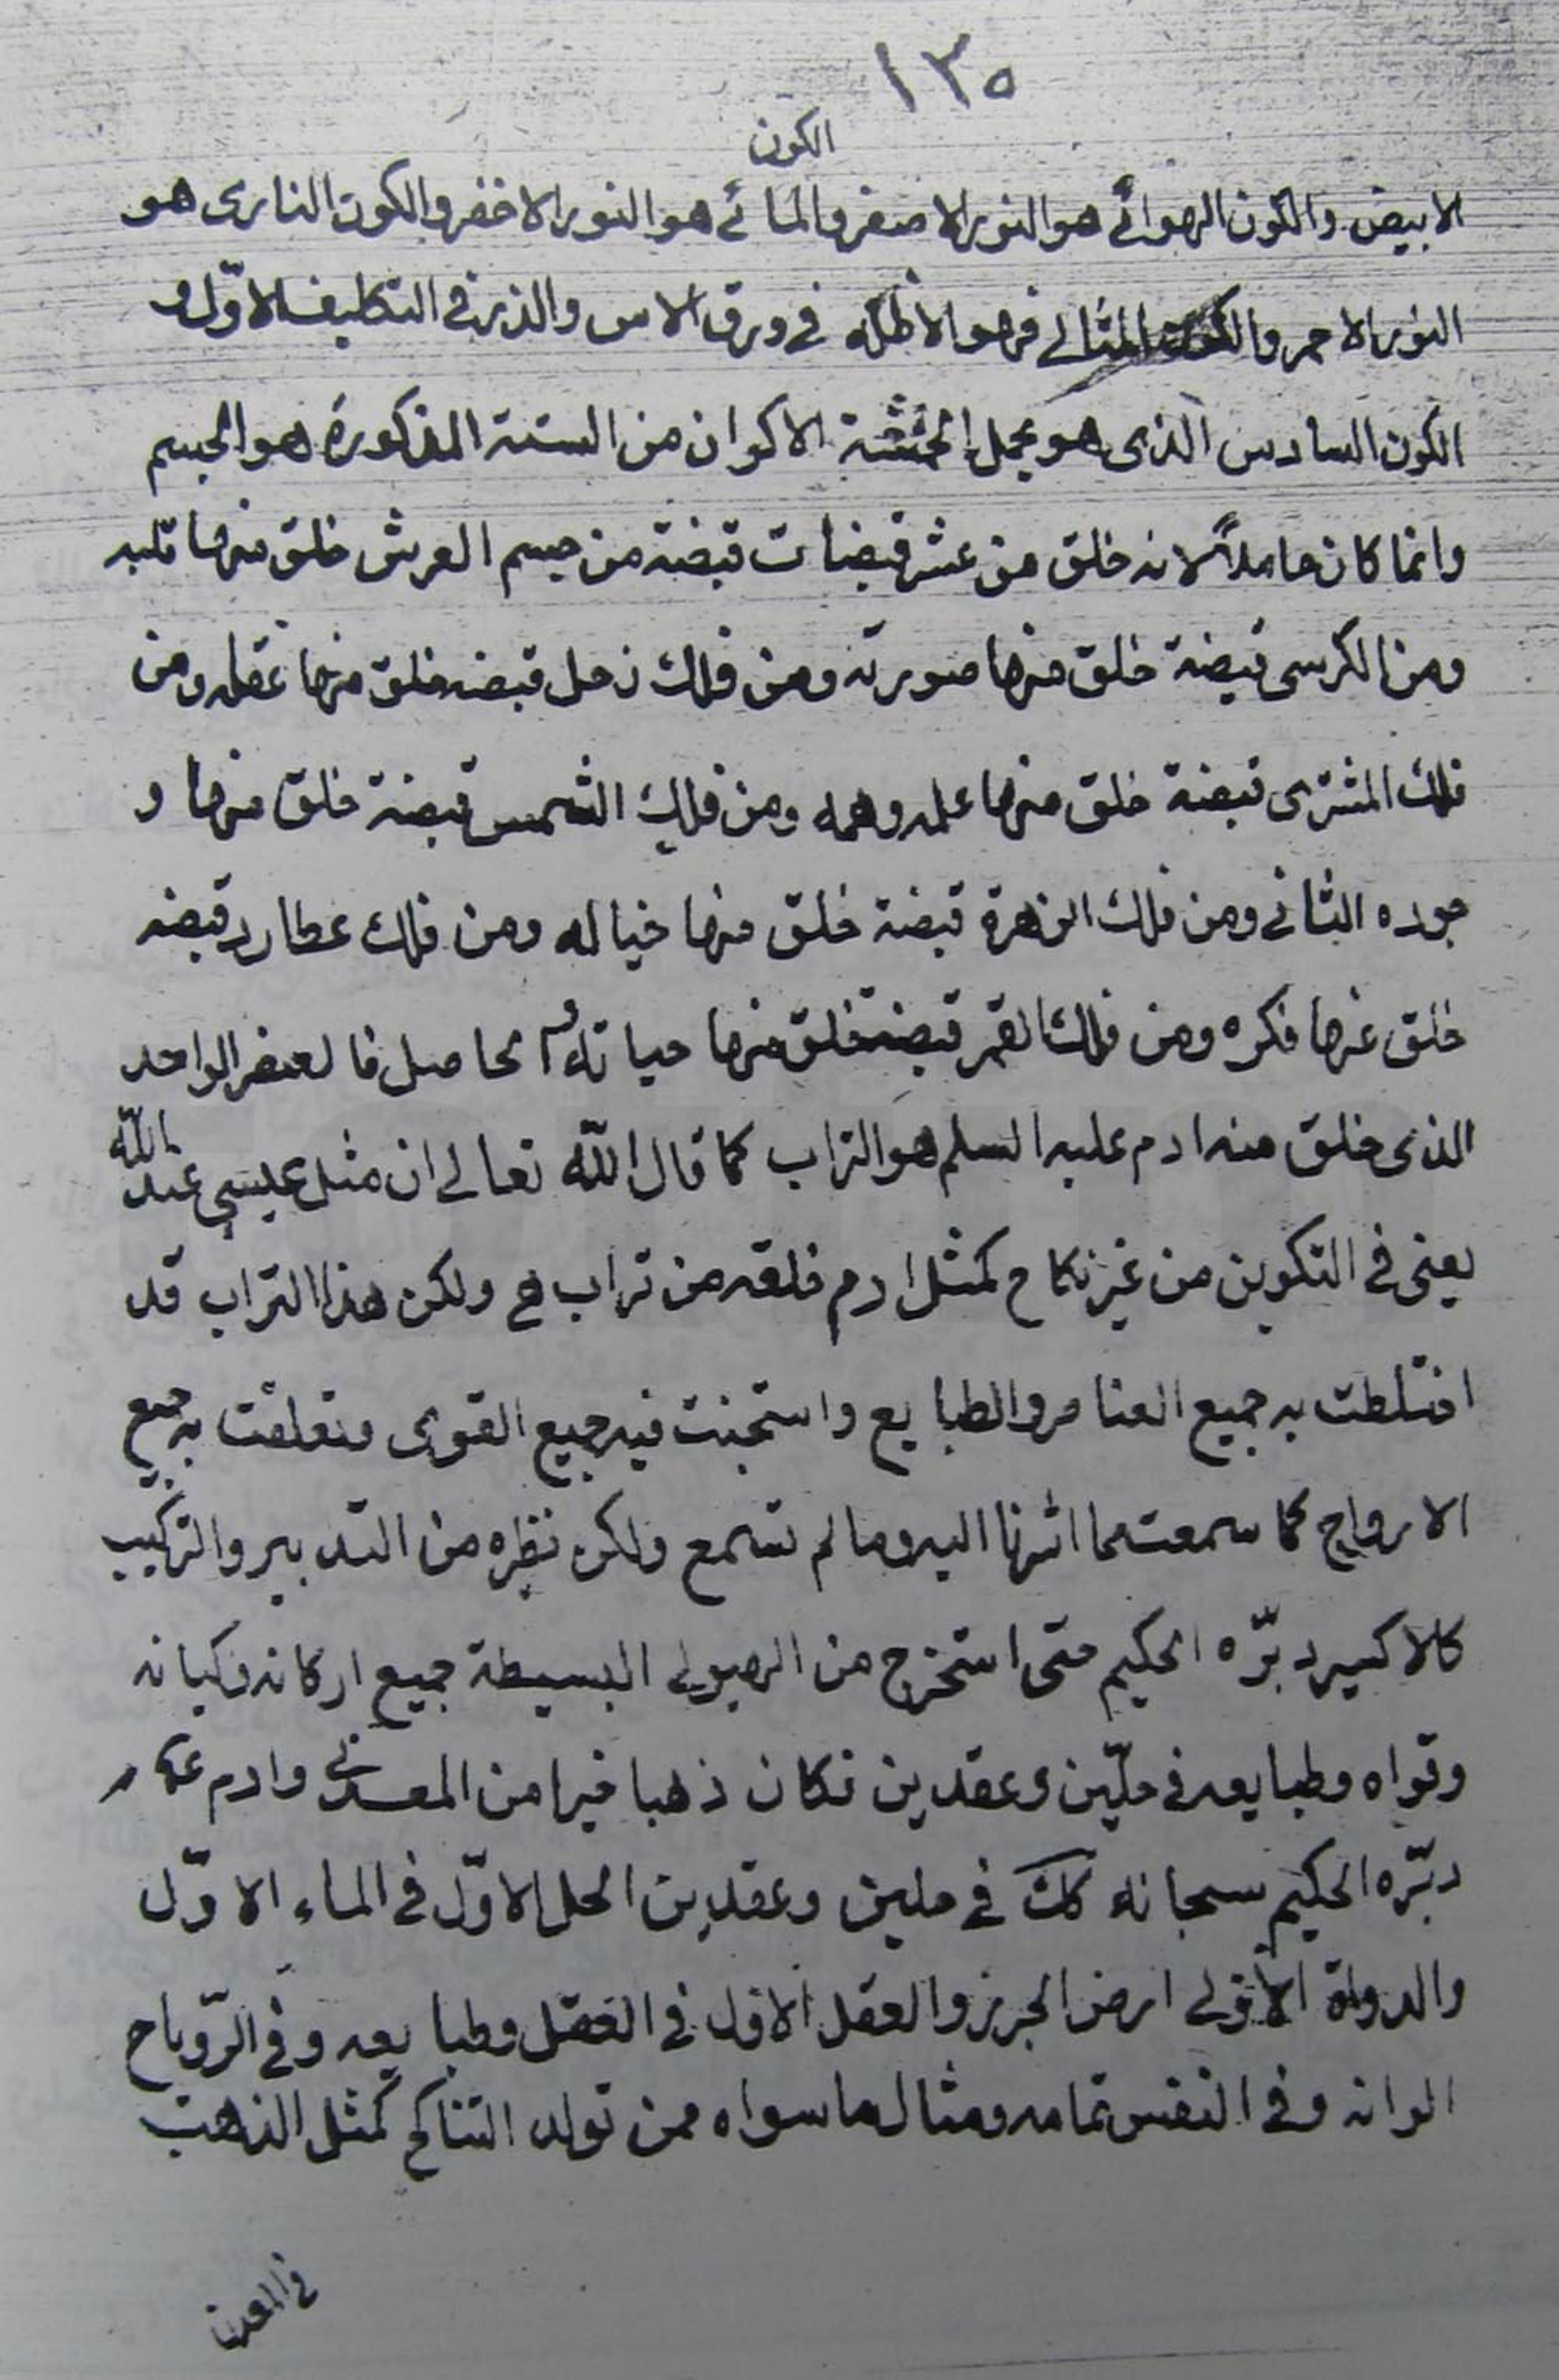 ١٣٥
الكون
الابيض والكون الهوائے هو النور الاصفر والمائے هو النور الاخضر والكون النارى هو
النور الاحمر والكون المثالے فهو الاظلّه فے ورق الاس والذر فے التكليف الاوّل و
الكون السادس الذى هو يحمل الخمسة الاكوان من الستة المذكورة هو الجسم
وانما كان حاملاً لانه خلق من عشر قبضات قبضة من جسم العرش خلق منها قلبه
ومن الكرسى قبضة خلق منها صورته ومن فلك زحل قبضه خلق منها عقله ومن
فلك المشترى قبضة خلق منها علمه وهمه ومن فلك الشمس قبضة خلق منها و
جوده الثانے ومن فلك الزهرة قبضة خلق منها خياله ومن فلك عطارد قبضه
خلق منها فكره ومن فلك القمر قبضة خلق منها حياته و الحاصل فالعنصر الواحد
الذى خلق منه ادم عليه السلم هو التراب كما قال اللّه تعالے ان مثل عيسى عند اللّه
يعنى فى التكوين من غير نكاح كمثل ادم خلقه من تراب ولكن هذا التراب قد
اختلطت به جميع العناصر والطبايع واستجنت فيه جميع القوى وتعلقت به جميع
الارواح كما سمعت مما اشرنا اليه وما لم تسمع ولكن نظره من التدبير والتركيب
كالاكسير دبّره الحكيم حتى استخرج من الهيولے البسيطة جميع اركانه وكيانه
وقواه وطبايعه فے حلّين وعقدين فكان ذهبا خيرا من المعدنے وادم
دبّره الحكيم سبحانه كك فے حلين وعقدين الحل الاوّل فى الماء الاوّل
والدواة الاولے ارض الجرز والعقل الاول فے العقل وطبايعه وفے الرّوح
الوانه وفے النفس تمامه ومثال ماسواه ممن تولد التناكح كمثل الذهب
فے المعدن